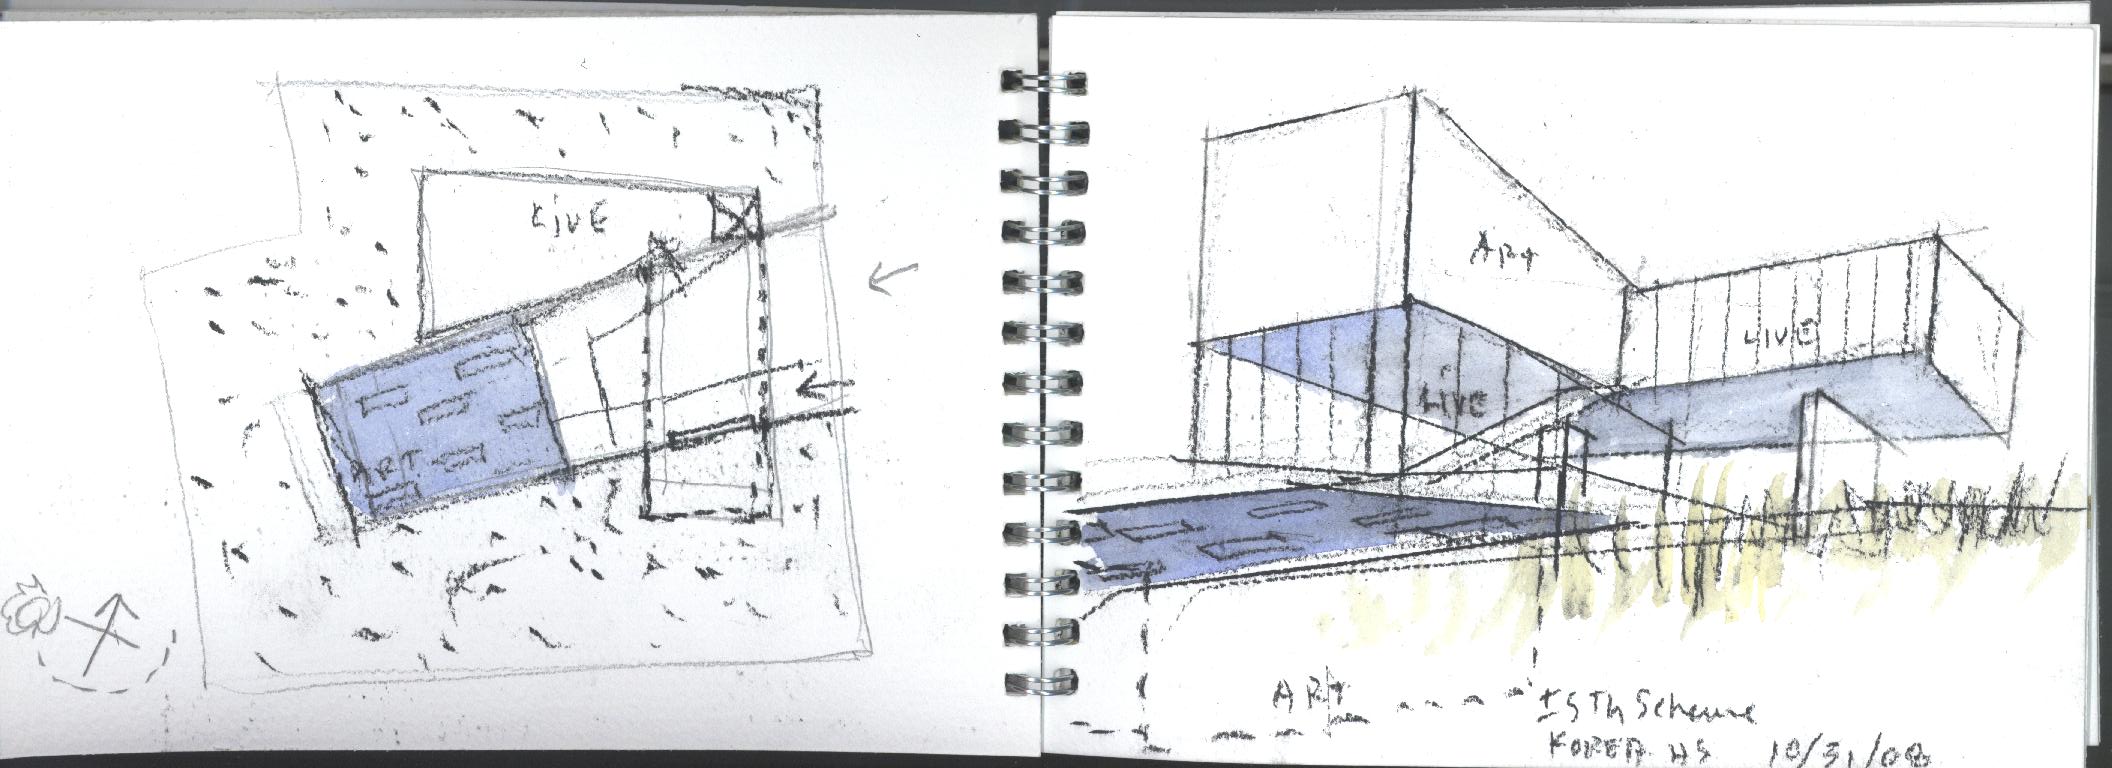 LIVE
ART
ART
LIVE
LIVE
ART
±5Th Scheme
KOREA HS 10/31/08